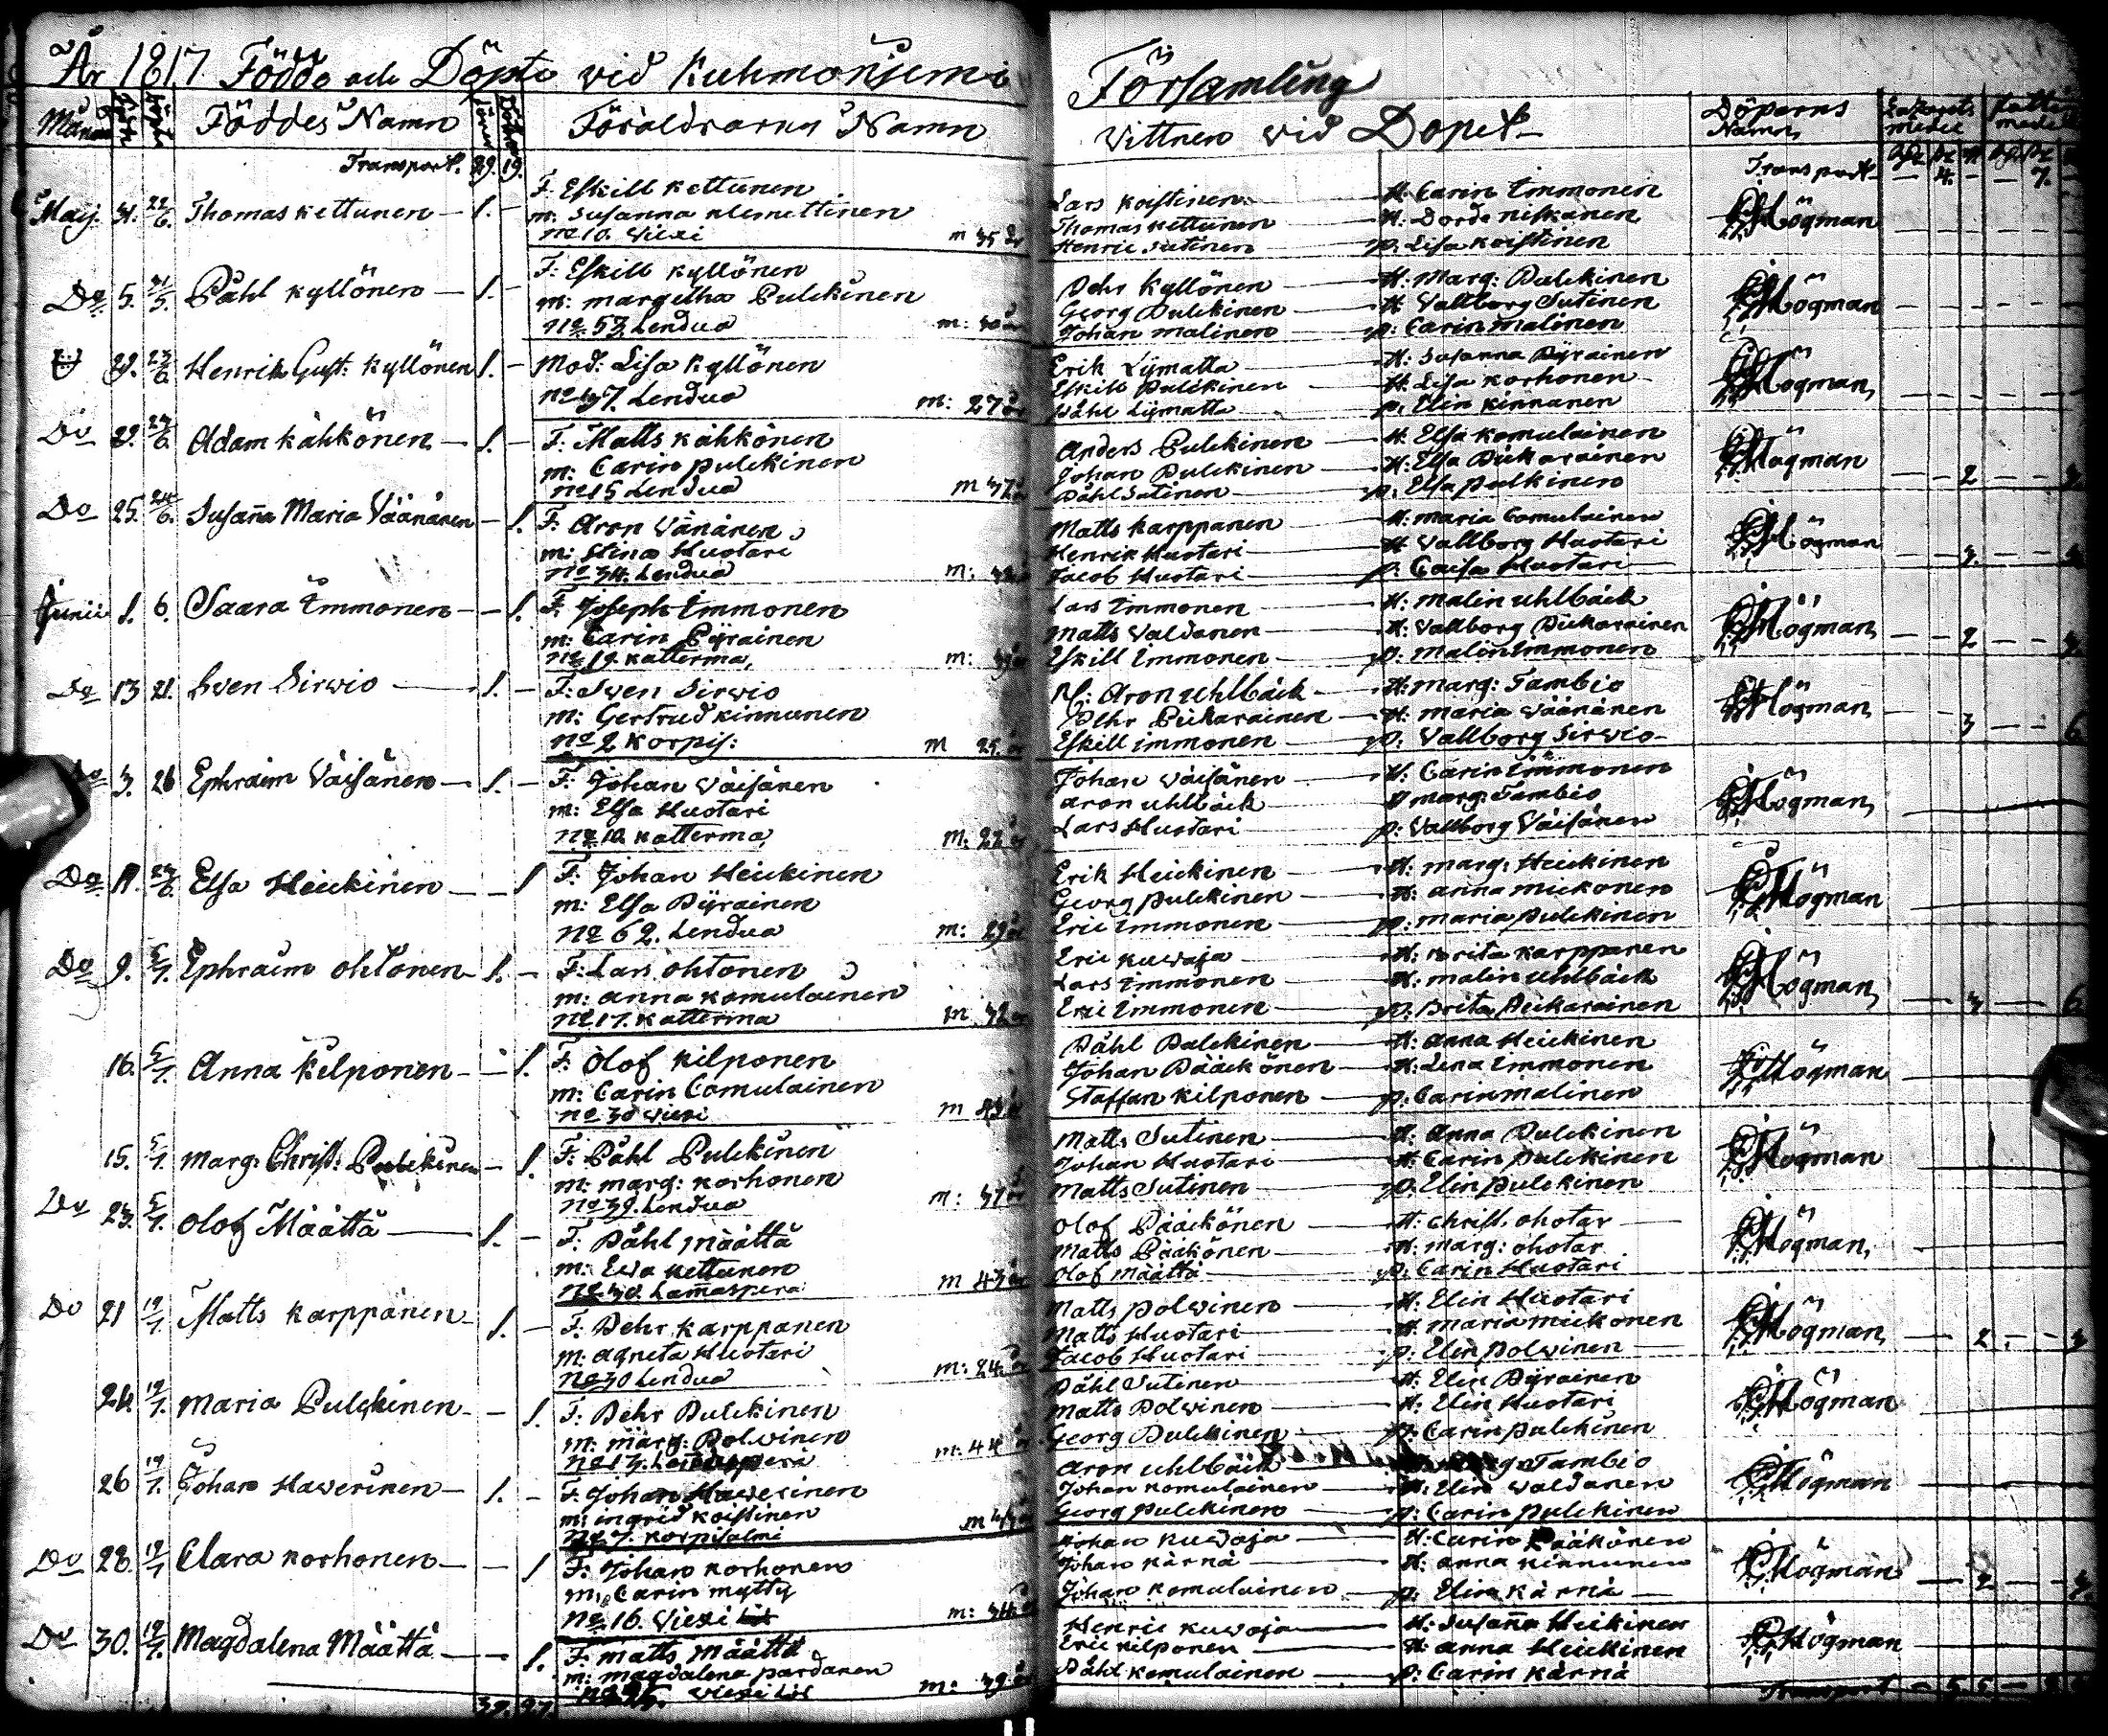 År 1817 Födde och Döpte vid Kuhmoniemi Församling
Månad Födde Döpte Föddes Namn Söner Döttrar Föräldrarnes Namn Vittnen vid Dopet Döparens Namn
Transport. 29. 19. Transport — 4. — — 7.
F. Eskill Kettunen Lars Koistinen — H. Carin Immonen
Maij. 31. 22/6. Thomas Kettunen — 1. — m: Susanna Klemettinen Thomas Kettunen — H: Dorde Niskanen Högman
No 10. Viexi m 35 år Henric Sutinen — p: Lisa Koistinen
F: Eskill Kyllönen Pehr Kyllönen — H: Marg: Pulckinen
Do 5. Påhl Kyllönen — 1. — m: Margetha Pulckinen Georg Pulckinen — H Vallborg Sutinen Högman
No 57. Lendua m: Johan Malinen — p: Carin Malinen
Henrik Gust: Kyllönen 1. — Mod: Lisa Kyllönen Erik Lymatta — H: Susanna Pyrainen
Eskill Pulckinen — H. Lisa Korhonen Högman
Lendua m: 27 år Påhl Lymatta — p. Elin Kinnanen
Do 29. Adam Kähkönen — 1. — F: Matts Kähkönen Anders Pulckinen — H Elsa Komulainen
m: Carin Pulckinen Johan Pulckinen — H: Elsa Pickarainen Högman
No 15 Lendua m 37 Påhl Sutinen — p: Elsa Pulkinen — 2 —
Do 25. 24/6. Susanna Maria Väänänen — 1. F. Aron Vänänen Matts Karppanen — H: Maria Comulainen
m: Stina Huotari Henrik Huotari — H Vallborg Huotari Högman
No 34. Lendua m: Jacob Huotari — p: Caisa Huotari
Junii 1. 6. Saara Immonen — 1. F. Joseph Immonen Lars Immonen — H: Malin Uhlbäck
m: Carin Pyrainen Matts Valdanen — H: Vallborg Pickarainen Högman
No 19. Katterma, m: Eskill Immonen — p: Malin Immonen — 2 —
Do 13 21. Sven Sirvio — 1. — F: Sven Sirvio Aron Uhlbäck — H: Marg: Tambio
m: Gertrud Kinnunen Pehr Pickarainen — H: Maria Väänänen Högman
No 2 Korpis: m 25. år Eskill Immonen — p: Vallborg Sirvio — 3 — 6
Do 3. 26 Ephraim Väisänen — 1. — F: Johan Väisänen Johan Väisänen — H: Carin Immonen
m: Elsa Huotari Aron Uhlbäck — H Marg: Tambio Högman
No 10. Katterma, m: 22 år Lars Huotari — p: Vallborg Väisänen
Do Elsa Heickinen — 1 F. Johan Heickinen Erik Heickinen — H: Marg: Heickinen
m: Elsa Pyrainen Georg Pulckinen — H: Anna Mickonen Högman
No 62. Lendua m: 29 år Eric Immonen — p: Maria Pulckinen
Do 9. 5/7. Ephraim Ohtonen — 1. — F: Lars Ohtonen Eric Kuvaja — H: Brita Karppanen
m: Anna Komulainen Lars Immonen — H: Malin Uhlbäck Högman
No 17. Katterma m 32 Eric Immonen — p: Brita Pickarainen — 6.
16. 5/7. Anna Kilponen — 1. F. Olof Kilponen Påhl Pulckinen — H: Anna Heickinen
m: Carin Comulainen Johan Pääckönen — H: Lena Immonen Högman
No 30 Viexi m Staffan Kilponen — p: Carin Malinen
15. 5/7. Marg: Christ: Pulckinen — 1. F: Påhl Pulckinen Matts Sutinen — H: Anna Pulckinen
m: Marg: Korhonen Johan Huotari — H: Carin Pulckinen Högman
No 39. Lendua m: 37 Matts Sutinen — p. Elin Pulckinen
Do 23. 5/7. Olof Määttä — 1. — F: Påhl Määttä Olof Pääckönen — H: Christ. Ohotar
m: Eva Kettunen Matts Pääkönen — H: Marg: Ohotar Högman,
No 30. Lamaspera m 43 Olof Määttä — p: Carin Huotari
Do 21 19/7. Matts Karppanen — 1. — F. Pehr Karppanen Matts Polvinen — H: Elin Huotari
m: Agneta Huotari Matts Huotari — H Maria Mickonen Högman,
No 30 Lendua m: 24. Jacob Huotari — p: Elin Polvinen — 2.
24. 19/7. Maria Pulckinen — 1. F: Pehr Pulckinen Påhl Sutinen — H: Elin Pyrainen
m: Marg: Polvinen Matts Polvinen — H. Elin Huotari Högman
m: 44 Georg Pulckinen — p: Carin Pulckinen
26 19/7. Johan Haverinen — 1. — F. Johan Haverinen Aron Uhlbäck — Tambio
m: Ingrid Koistinen Johan Komulainen — H: Elin Valdanen Högman
No 7. Korpisalmi m Georg Pulckinen — p: Carin Pulckinen
Do 28. 19/7 Clara Korhonen — 1 F: Johan Korhonen Johan Kuvaja — H: Carin Pääkönen
m: Carin Mytty Johan Kärnä — H: Anna Kinnunen Högman
No 16. Viexi m: 34. Johan Komulainen — p: Elin Kärnä — 2
Do 30. 19/7. Magdalena Määttä — 1. F. Matts Määttä Henric Kuvaja — H: Susanna Heikinen
m: Magdalena Pardanen Eric Kilponen — H: Anna Heickinen Högman
Viexi m: 39 Påhl Komulainen — p: Carin Kärnä
39. 27. Transport